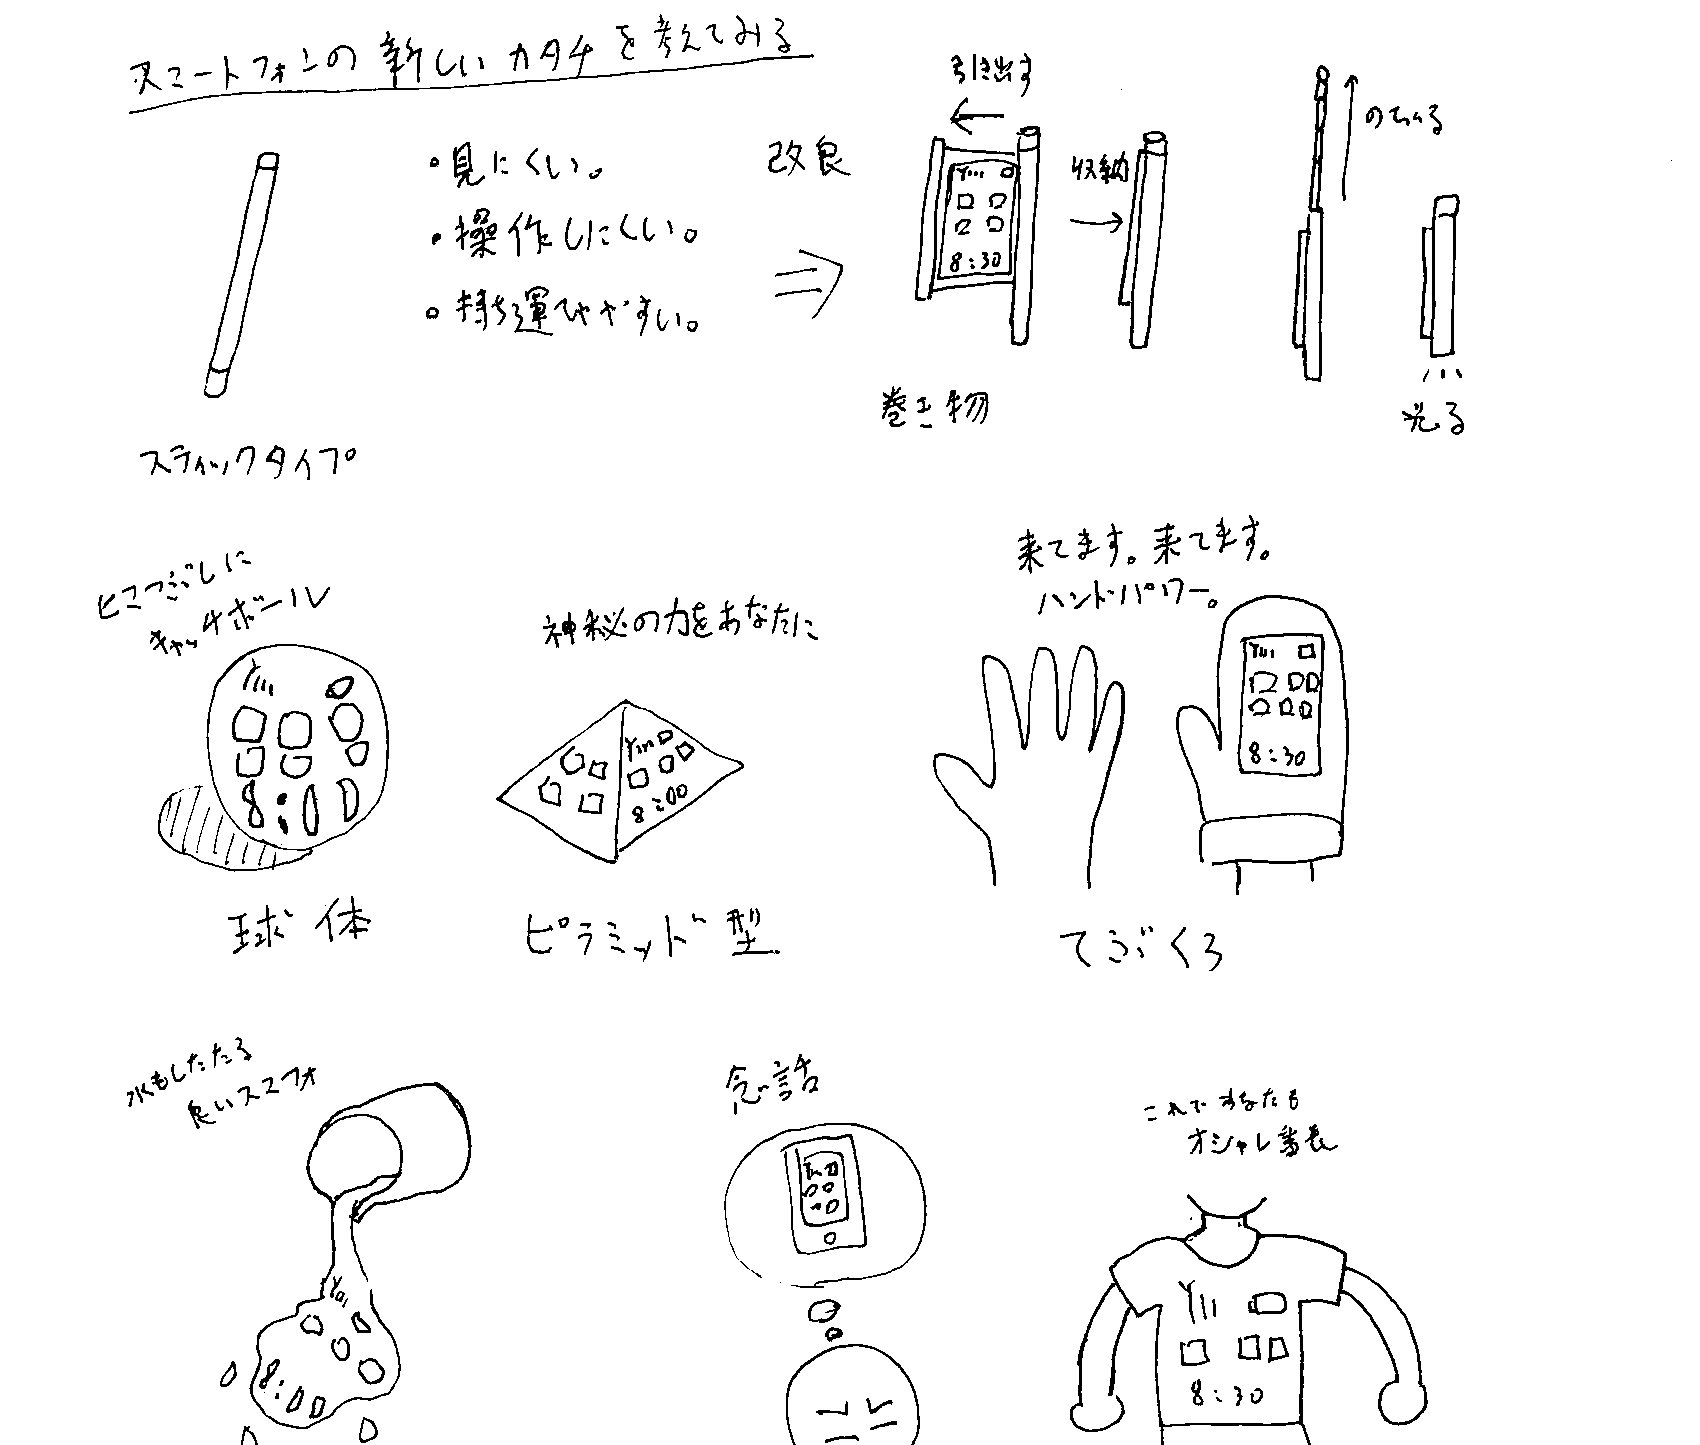 スマートフォンの新しいカタチを考えてみる
・見にくい。
・操作しにくい。
・持ち運びやすい。
スティックタイプ
改良
引き出す
8:30
収納
巻き物
のびる
光る
ヒマつぶしに
キャッチボール
8:00
球体
神秘の力をあなたに
8:00
ピラミッド型
来てます。来てます。
ハンドパワー。
8:30
てぶくろ
水もしたたる
良いスマフォ
8:00
念話
これであなたも
オシャレ番長
8:30